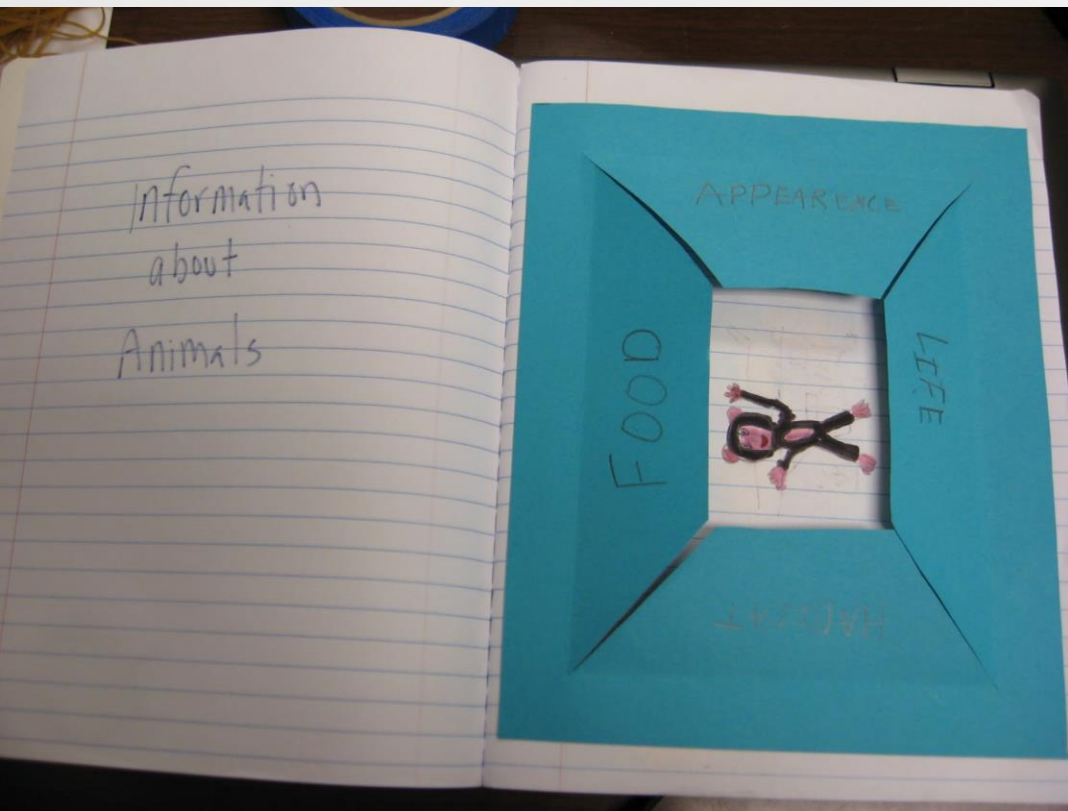 Information
about
Animals
APPEARENCE
FOOD
LIFE
HABITAT